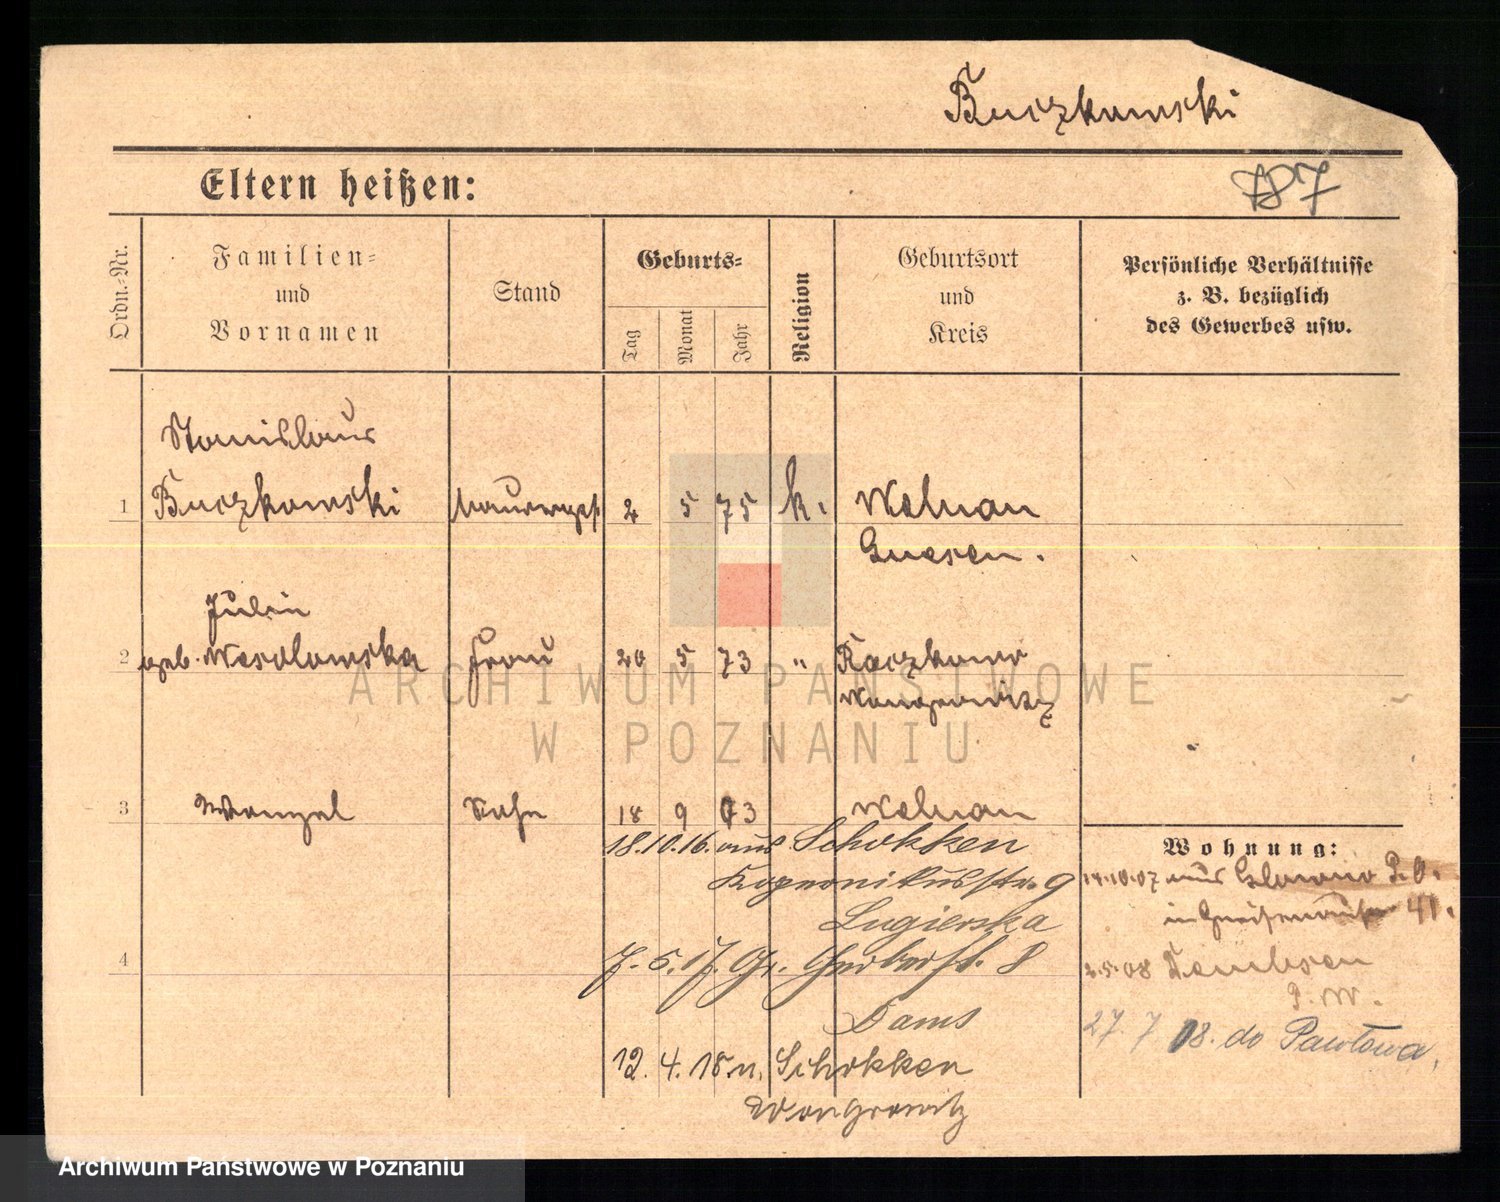 Buczkowski
787
Eltern heißen:
Ordn.-Nr.
Familien-
und
Vornamen
Stand
Geburts-
Tag
Monat
Jahr
Religion
Geburtsort
und
Kreis
Persönliche Verhältnisse
z. B. bezüglich
des Gewerbes usw.
Stanislaus
1 Buczkowski Maurerges. 2 5 75 k. Welnau
Gnesen.
Julia
2 geb. Wesolowska Frau 20 5 73 "
Wongrowitz
3 Wenzel Sohn 18 9 03 Welnau
18.10.16. aus Schokken
Kopernikusstr. 9
Lugierska
4 7.5.17. Gr. Gerberst. 8
Dams
12.4.18. n. Schokken
Wongrowitz
Wohnung:
14.10.07 aus Glowno P.O.
in 41.
2.5.08 Dembsen
P.W.
27.7 08. do Pawłowa,
ARCHIWUM PAŃSTWOWE
W POZNANIU
Archiwum Państwowe w Poznaniu